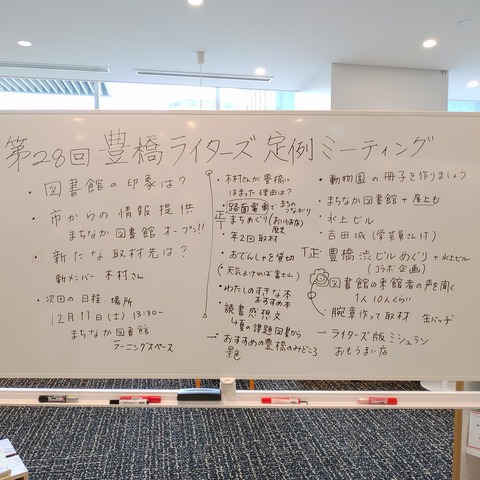 第28回 豊橋ライターズ 定例ミーティング
・図書館の印象は?
・市からの情報提供
まちなか図書館 オープン!!
・新たな取材先は?
新メンバー 木村さん
・次回の日程、場所
12月11日(土) 13:30~
まちなか図書館
ラーニングスペース
・木村さんが豊橋に
はまった理由は?
・路面電車で まちの
つながり
正 まちめぐり (おいしいお店)
丅 歴史
・年2回取材
・おでんしゃを貸切
(天気よければ富士山)
・わたしのすきな本
おすすめ本
・読書感想文
↳夏の課題図書から
→おすすめの豊橋のみどころ
景色
・動物園の冊子を作りましょう
・まちなか図書館+屋上も
・水上ビル
・吉田城(学芸員さん付)
丅正 豊橋渋ビルめぐり+水上ビル
(コラボ企画)
図書館の来館者の声を聞く
1人10人くらい
・腕章作って取材 缶バッヂ
→ライターズ版ミシュラン
おもうまい店